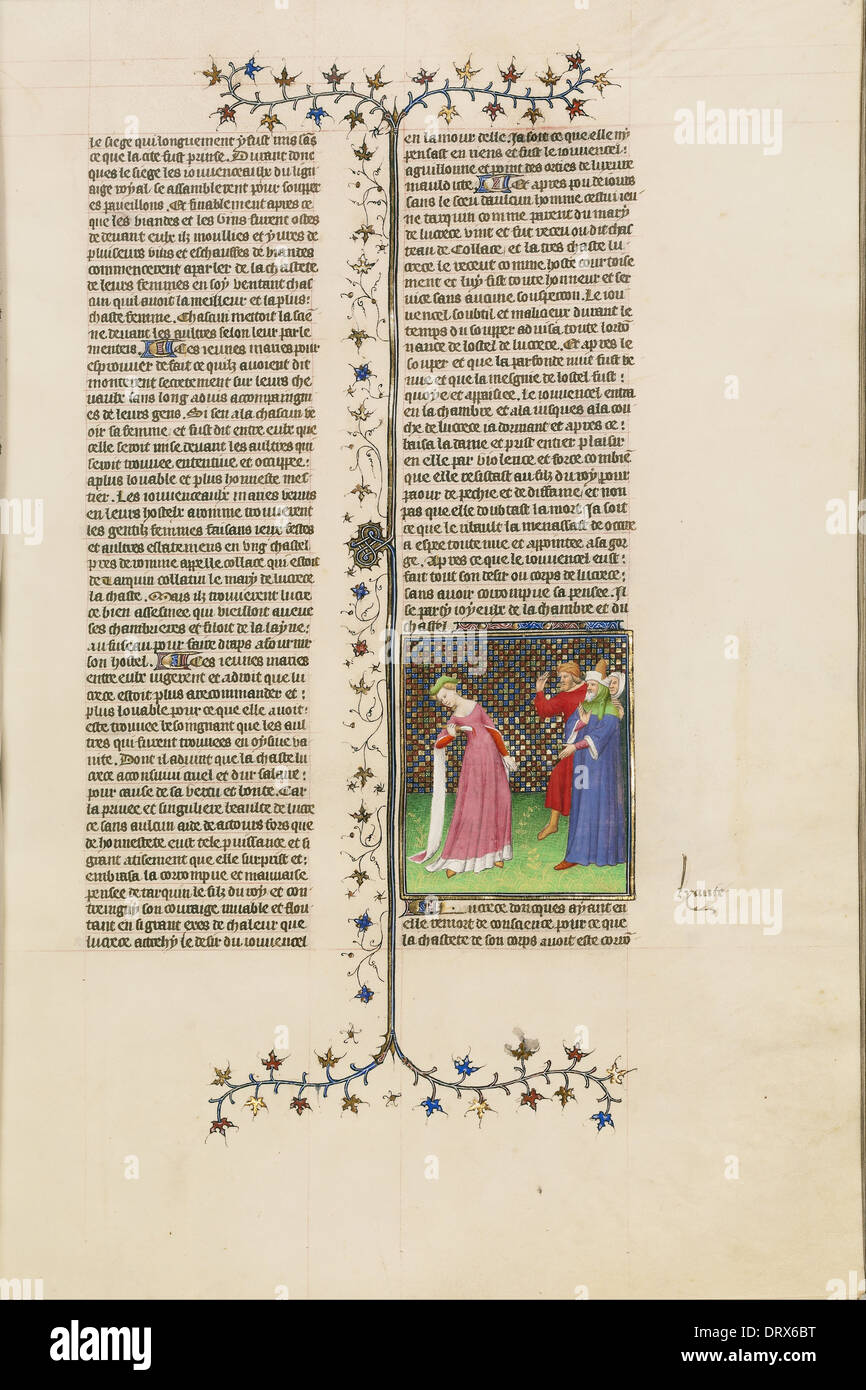 le siege qui longuement y fust mis sãs
ce que la cite fust prinse. Durant donc
ques le siege les iouuenceaulx du lign
aige royal se assamblerent pour soupper
es paueillons. Et finablement apres ce
que les viandes et les vins furent ostes
de deuant eulx ilz moullies et yures de
pluiseurs vins et eschauffes de viandes
commencerent aparler de la chastete
de leurs femmes en soy ventant chas
cun quil auoit la meilleur et la plus
chaste femme. Chascun mettoit la siẽ
ne deuant les aultres selon leur parle
menteis. Ces ieunes maries pour
esprouuer de fait ce quilz auoient dit
monterent secretement sur leurs che
uaulx sans long aduis accompaingni
es de leurs gens. Si sen ala chascun ve
oir sa femme et fust dit entre eulx que
celle seroit mise deuant les aultres qui
seroit trouuee ententiue et occuppee
a plus louable et plus honneste mes
tier. Les iouuenceaulx maries venus
en leurs hostelx a romme trouuerent
les gentilz femmes faisans ieux festes
et aultres esbatemens en vng chastel
pres de romme appelle collace qui estoit
de Tarquin collatin le mary de lucrece
la chaste. Mais ilz trouuerent lucre
ce bien assesmee qui vieilloit aueuc
ses chambrieres et filoit de la layne
au fuseau pour faire draps a fournir
son hostel. Ces ieunes maries
entre eulx iugerent et a droit que lu
crece estoit plus a recommander et
plus louable pour ce que elle auoit
este trouuee besoingnant que les aul
tres qui furent trouuees en oysiue va
nite. Dont il aduint que la chaste lu
crece acconsuiui cruel et dur salaire
pour cause de sa vertu et bonte. Car
la priuee et singuliere beaulte de lucre
ce sans aulcun aide de actours fors que
de honnestete eust tele puissance et si
grant atisement que elle surprist et
embrasa la corrompue et mauuaise
pensee de tarquin le filz du roy et con
traingny son couraige muable et flou
tant en si grant exes de chaleur que
lucrece actrehy le desir du iouuencel
en lamour delle. Ja soit ce que elle ny
pensast en riens et fust le iouuencel
aguillonne et point des orties de luxure
mauldicte. Et apres pou de iours
sans le sceu daulcun homme cestui ieu
ne tarquin comme parent du mary
de lucrece vint et fut receu ou dit chas
teau de Collace, et la tres chaste lu
crece le receut comme hoste courtoise
ment et luy fist toute honneur et ser
uice sans aucune souspecon. Le iou
uencel soubtil et malicieux durant le
temps du soupper aduisa toute lordõ
nance de lostel de lucrece. Et apres le
souper et que la parfonde nuit fust ve
nue et que la mesgnie de lostel fust
quoye et appaisiee. Le iouuencel entra
en la chambre et ala iusques a la cou
che de lucrece ia dormant et apres ce
baisa la dame et prist entier plaisir
en elle par violence et force combiẽ
que elle resistast au filz du roy pour
paour de pechie et de diffame et non
pas que elle doubtast la mort. Ja soit
ce que le ribault la menassast de occire
a espee toute nue et appointee a sa gor
ge. Apres ce que le iouuencel eust
fait tout son desir ou corps de lucrece
sans auoir corrompue sa pensee. Il
se party ioyeux de la chambre et du
chastel
Lucrece doncques ayant en
elle remort de conscience pour ce que
la chastete de son corps auoit este corrõ
alamy
a
Image ID: DRX6BT
www.alamy.com